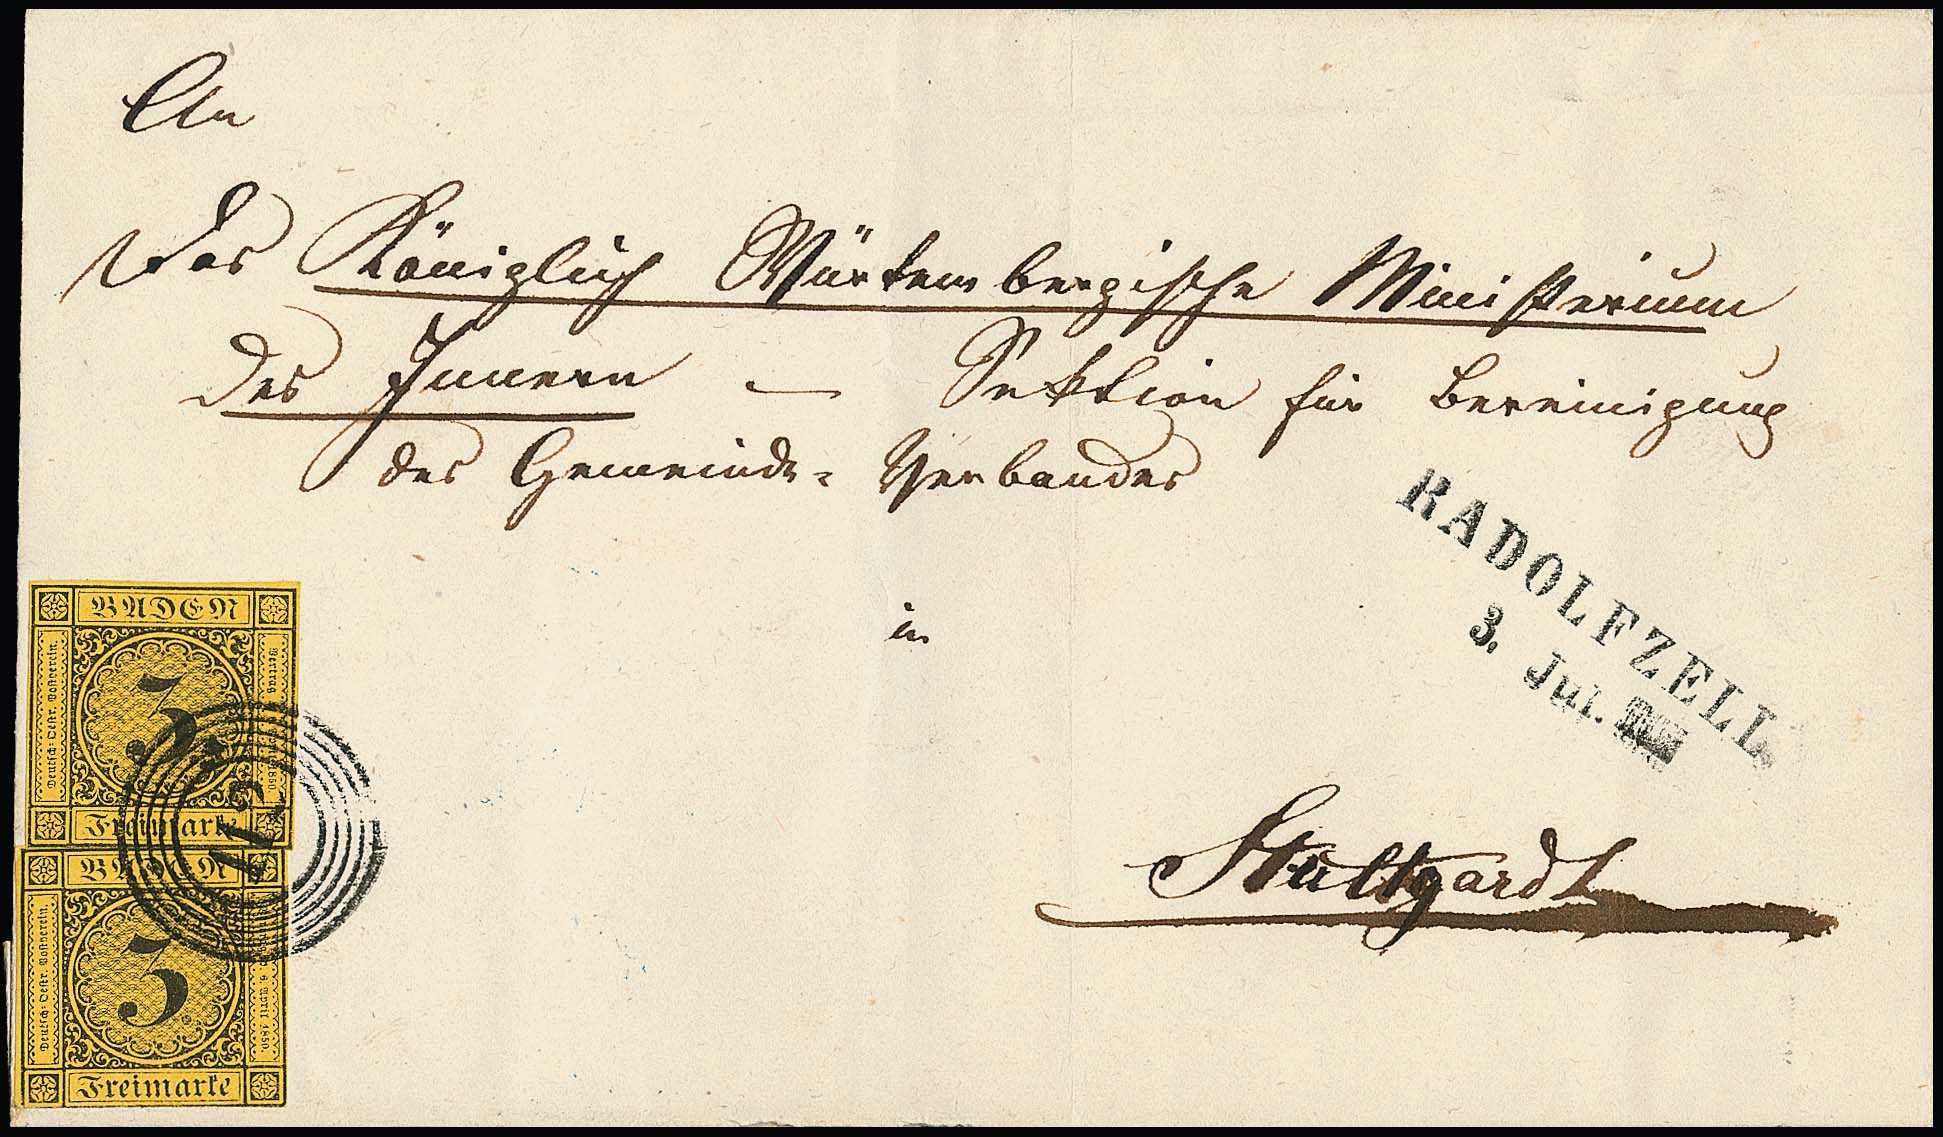 An
Das Königlich Würtembergische Ministerium
des Innern — Sektion für Bereinigung
des Gemeinde= Verbandes
in
Stuttgardt
RADOLFZELL
3. Jul.
BADEN
Deutsch=Oestr. Postverein.
3
Vertrag
1850.
Freimarke
112
BADEN
Deutsch=Oestr. Postverein.
3
6. April 1850.
Freimarke